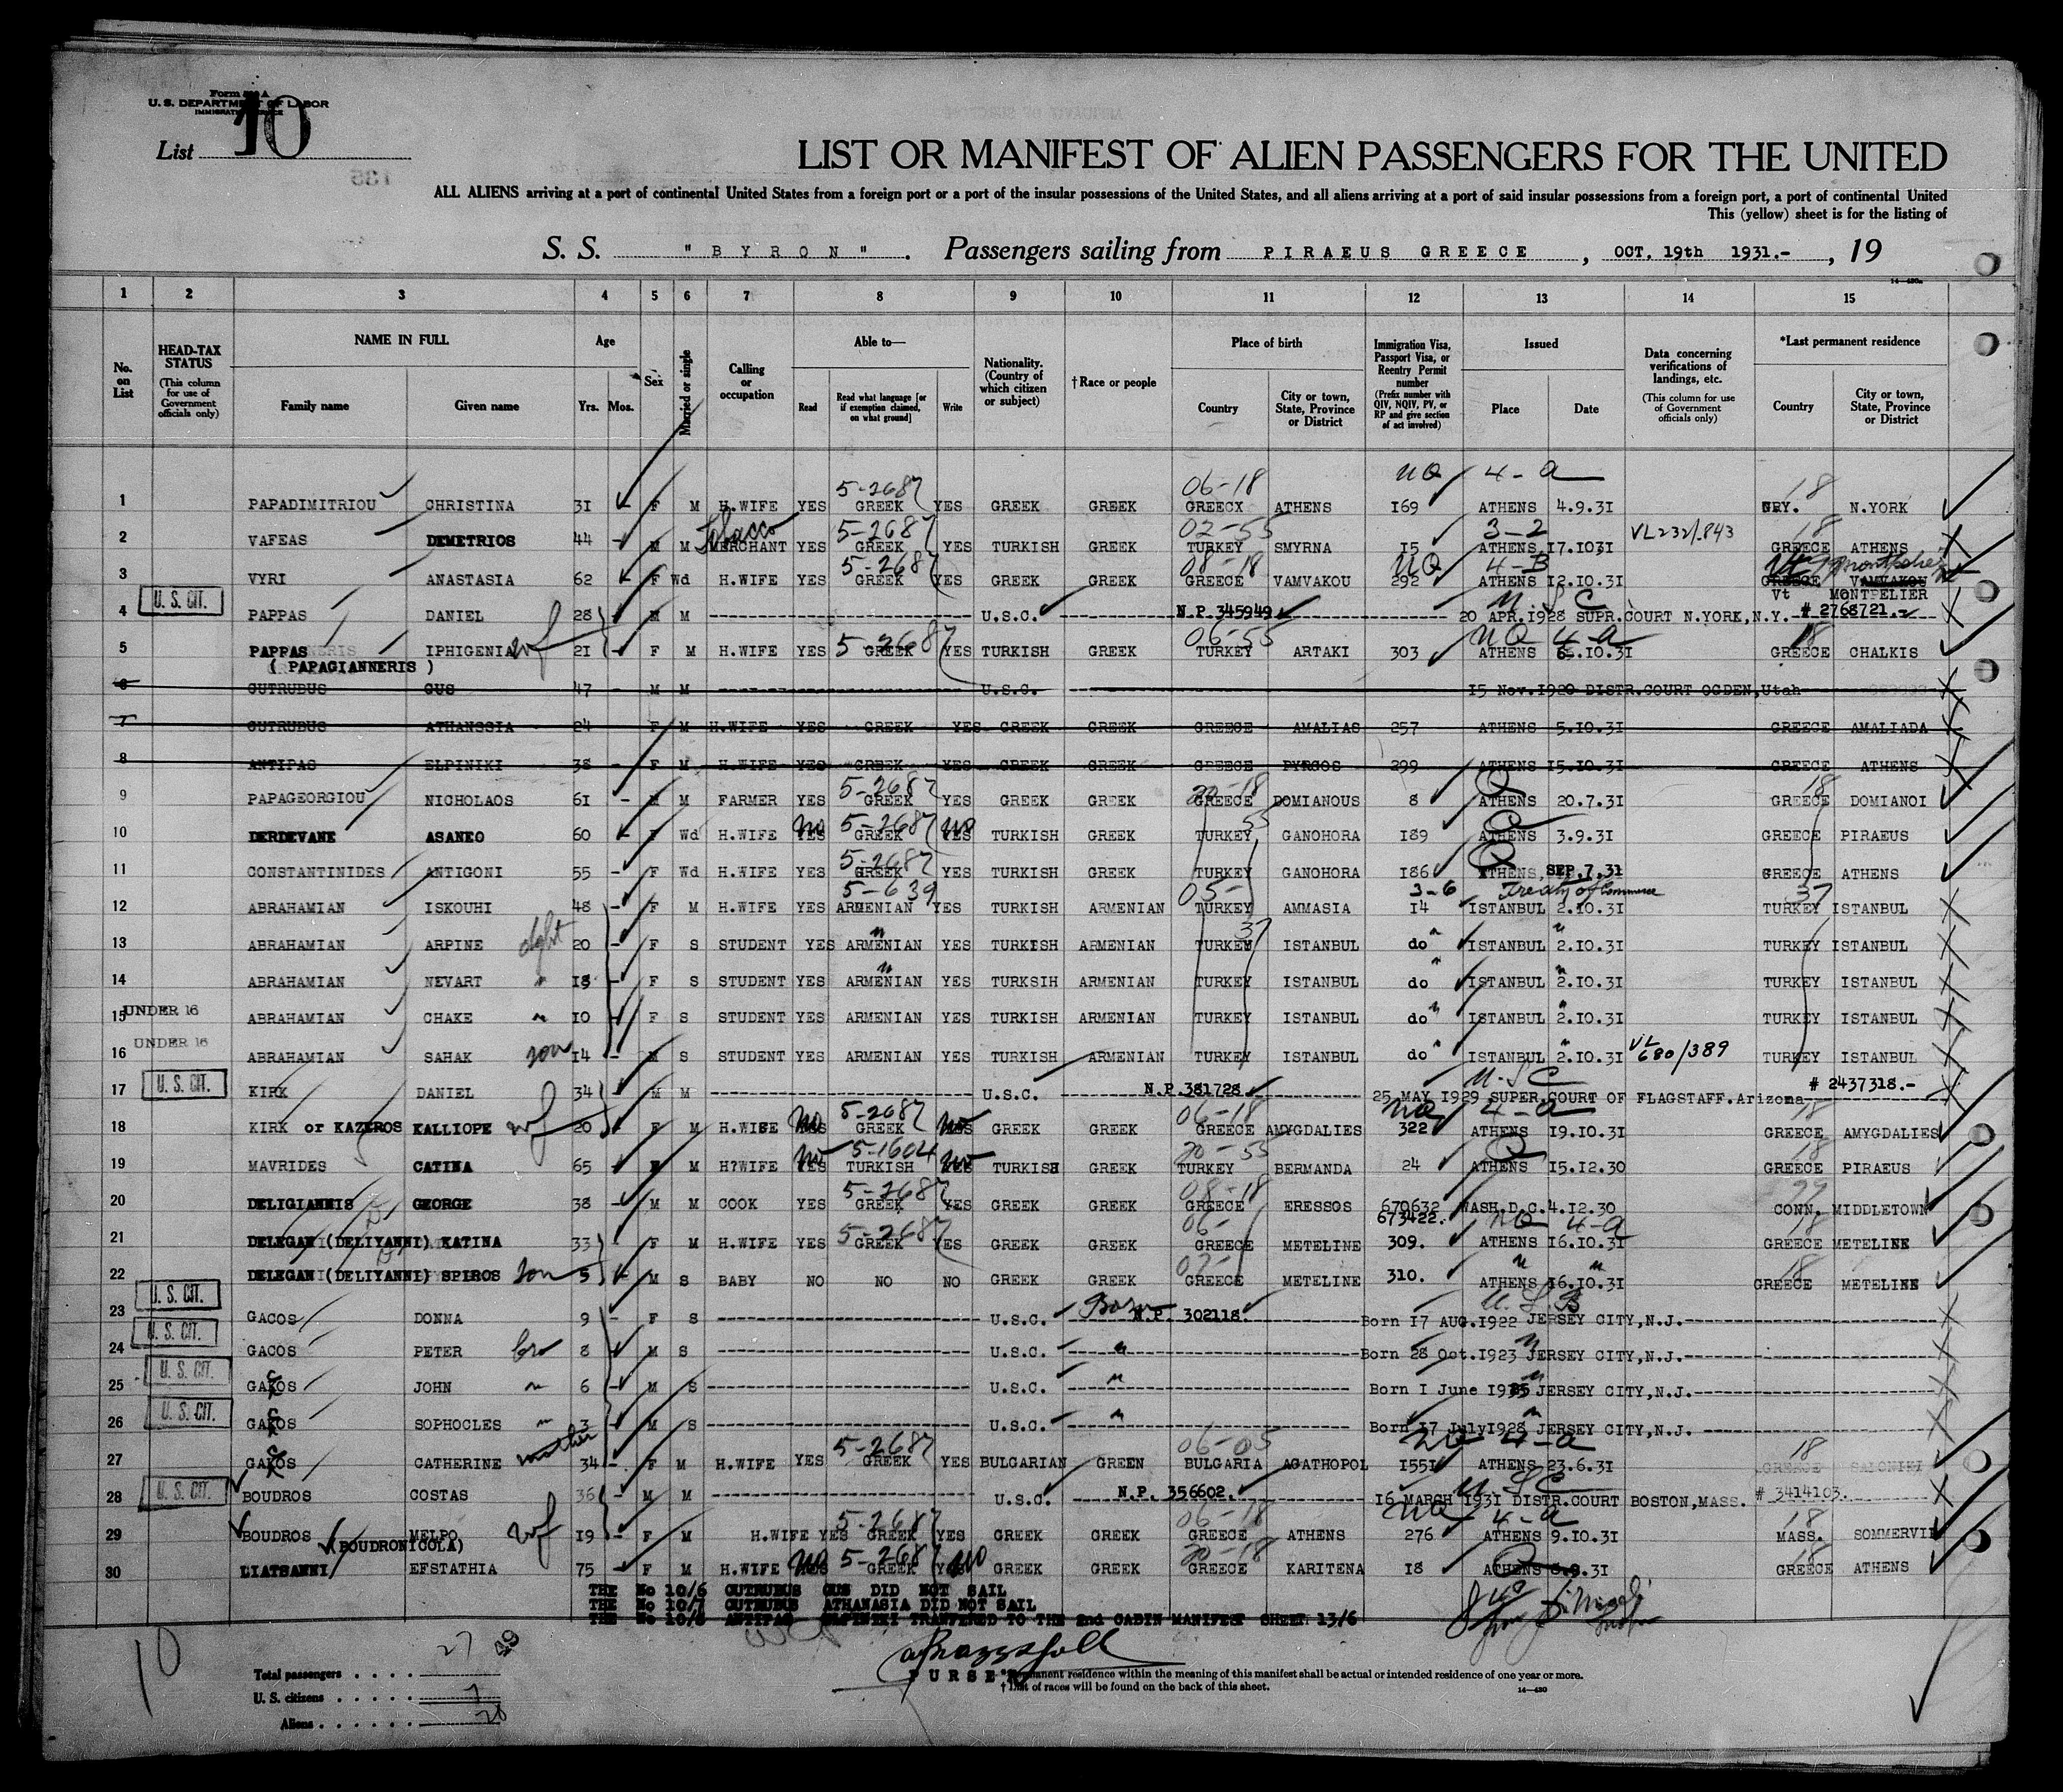 Form A
U. S. DEPARTMENT OF LABOR
List 10
LIST OR MANIFEST OF ALIEN PASSENGERS FOR THE UNITED
ALL ALIENS arriving at a port of continental United States from a foreign port or a port of the insular possessions of the United States, and all aliens arriving at a port of said insular possessions from a foreign port, a port of continental United
This (yellow) sheet is for the listing of
S. S. " B Y R O N " . Passengers sailing from PIRAEUS GREECE , OCT. 19th 1931.- , 19
1 2 3 4 5 6 7 8 9 10 11 12 13 14 15
No. on List
HEAD-TAX STATUS (This column for use of Government officials only)
NAME IN FULL Family name Given name
Age Yrs. Mos.
Sex
Married or single
Calling or occupation
Able to— Read Read what language [or if exemption claimed, on what ground] Write
Nationality. (Country of which citizen or subject)
†Race or people
Place of birth Country City or town, State, Province or District
Immigration Visa, Passport Visa, or Reentry Permit number (Prefix number with QIV, NQIV, PV, or RP and give section of act involved)
Issued Place Date
Data concerning verifications of landings, etc. (This column for use of Government officials only)
*Last permanent residence Country City or town, State, Province or District
5-2687 06-18 NQ 4-a 18
1 PAPADIMITRIOU CHRISTINA 31 - F M H.WIFE YES GREEK YES GREEK GREEK GREECX ATHENS 169 ATHENS 4.9.31 N.YORK
Tobacco 5-2687 02-55 3-2 VL232/.843 18
2 VAFEAS DEMETRIOS 44 - M M MERCHANT YES GREEK YES TURKISH GREEK TURKEY SMYRNA 15 ATHENS 17.1031 GREECE ATHENS
5-2687 08-18 NQ 4-B
3 VYRI ANASTASIA 62 F Wd H.WIFE YES GREEK YES GREEK GREEK GREECE VAMVAKOU 292 ATHENS 12.10.31 GREECE VAMVAKOU
Vt MONTPELIER
U. S. CIT. U S C
4 PAPPAS DANIEL 28 M M U.S.C. N.P.345949 20 APR.1928 SUPR.COURT N.YORK,N.Y. # 2768721.-
wf 5-2687 06-55 NQ 4-a 18
5 PAPPAS IPHIGENIA 21 - F M H.WIFE YES GREEK YES TURKISH GREEK TURKEY ARTAKI 303 ATHENS 6.10.31 GREECE CHALKIS
( PAPAGIANNERIS )
6 GUTRUBUS GUS 47 - M M U.S.C. 15 Nov.1920 DISTR.COURT OGDEN,Utah
7 GUTRUBUS ATHANSSIA 24 F M H.WIFE YES GREEK YES GREEK GREEK GREECE AMALIAS 257 ATHENS 5.10.31 GREECE AMALIADA
8 ANTIPAS ELPINIKI 38 - F M H.WIFE YES GREEK YES GREEK GREEK GREECE PYRGOS 299 ATHENS 15.10.31 GREECE ATHENS
5-2687 20-18 Q 18
9 PAPAGEORGIOU NICHOLAOS 61 - M M FARMER YES GREEK YES GREEK GREEK GREECE DOMIANOUS 8 ATHENS 20.7.31 GREECE DOMIANOI
No 5-2687 No 55 Q
10 DERDEVANE ASANKO 60 - F Wd H.WIFE YES GREEK YES TURKISH GREEK TURKEY GANOHORA 189 ATHENS 3.9.31 GREECE PIRAEUS
5-2687 Q
11 CONSTANTINIDES ANTIGONI 55 - F Wd H.WIFE YES GREEK YES TURKISH GREEK TURKEY GANOHORA 186 ATHENS, SEP.7.31 GREECE ATHENS
5-639 05- 3-6 Treaty of Commerce 37
12 ABRAHAMIAN ISKOUHI 48 - F M H.WIFE YES ARMENIAN YES TURKISH ARMENIAN TURKEY AMMASIA 14 ISTANBUL 2.10.31 TURKEY ISTANBUL
13 ABRAHAMIAN ARPINE dght 20 - F S STUDENT YES ARMENIAN YES TURKISH ARMENIAN TURKEY ISTANBUL do ISTANBUL 2.10.31 TURKEY ISTANBUL
14 ABRAHAMIAN NEVART " 18 - F S STUDENT YES ARMENIAN YES TURKSIH ARMENIAN TURKEY ISTANBUL do ISTANBUL 2.10.31 TURKEY ISTANBUL
15 UNDER 16 ABRAHAMIAN CHAKE " 10 - F S STUDENT YES ARMENIAN YES TURKISH ARMENIAN TURKEY ISTANBUL do ISTANBUL 2.10.31 TURKEY ISTANBUL
16 UNDER 16 ABRAHAMIAN SAHAK son 14 - M S STUDENT YES ARMENIAN YES TURKISH ARMENIAN TURKEY ISTANBUL do ISTANBUL 2.10.31 VL 680/389 TURKEY ISTANBUL
U. S. CIT. U.S C
17 KIRK DANIEL 34 M M U.S.C. N.P.381728 25 MAY 1929 SUPER.COURT OF FLAGSTAFF.Arizona # 2437318.-
No 5-2687 No 06-18 NQ 4-a 18
18 KIRK or KAZEROS KALLIOPE wf 20 - F M H.WISE YES GREEK YES GREEK GREEK GREECE AMYGDALIES 322 ATHENS 19.10.31 GREECE AMYGDALIES
No 5-1604 No 20-55 Q 18
19 MAVRIDES CATINA 65 F M H?WIFE YES TURKISH YES TURKISH GREEK TURKEY BERMANDA 24 ATHENS 15.12.30 GREECE PIRAEUS
5-2687 08-18
20 DELIGIANNIS GEORGE 38 - M M COOK YES GREEK YES GREEK GREEK GREECE ERESSOS 670632 WASH.D.C.4.12.30 CONN. MIDDLETOWN
673422.
5-2687 06- NQ 4-a 18
21 DELEGANI (DELIYANNI) KATINA 33 - F M H.WIFE YES GREEK YES GREEK GREEK GREECE METELINE 309. ATHENS 16.10.31 GREECE METELINE
22 DELEGANI (DELIYANNI) SPIROS son 5 - M S BABY NO NO NO GREEK GREEK GREECE METELINE 310. ATHENS 16.10.31 GREECE METELINE
U. S. CIT. Born U.S.B
23 GACOS DONNA 9 - F S U.S.C. N.P. 302118. Born 17 AUG.1922 JERSEY CITY,N.J.
U. S. CIT.
24 GACOS PETER bro 8 - M S U.S.C. " Born 28 Oct.1923 JERSEY CITY,N.J.
U. S. CIT.
25 GACOS JOHN " 6 - M S U.S.C. " Born 1 June 1925 JERSEY CITY,N.J.
U. S. CIT.
26 GACOS SOPHOCLES " 3 - M S U.S.C. " Born 17 July1928 JERSEY CITY,N.J.
mother 5-2687 06-05 NQ 4-a 18
27 GACOS CATHERINE 34 - F M H.WIFE YES GREEK YES BULGARIAN GREEN BULGARIA AGATHOPOL 1551 ATHENS 23.6.31 GREECE SALONIKI
U. S. CIT. U S C
28 BOUDROS COSTAS 36 - M M U.S.C. N.P. 356602. 16 MARCH 1931 DISTR.COURT BOSTON,MASS. # 3414103.
5-2687 06-18 NQ 4-a 18
29 BOUDROS MELPO wf 19 - F M H.WIFE YES GREEK YES GREEK GREEK GREECE ATHENS 276 ATHENS 9.10.31 MASS. SOMMERVIL
(BOUDRONICOLA)
No 5-2687 No 20-18 Q 18
30 LIATSANNI EFSTATHIA 75 - F M H.WIFE YES GREEK YES GREEK GREEK GREECE KARITENA 18 ATHENS 8.9.31 GREECE ATHENS
THE No 10/6 GUTRUBUS GUS DID NOT SAIL
THE No 10/7 GUTRUBUS ATHANASIA DID NOT SAIL
THE No 10/8 ANTIPAS ELPINIKI TRANFERED TO THE 2nd CABIN MANIFEST SHEET 13/6
10
Total passengers . . . . 27
U. S. citizens . . . . . 7
Aliens . . . . . . 20
PURSER
*Permanent residence within the meaning of this manifest shall be actual or intended residence of one year or more.
† List of races will be found on the back of this sheet.
14—430